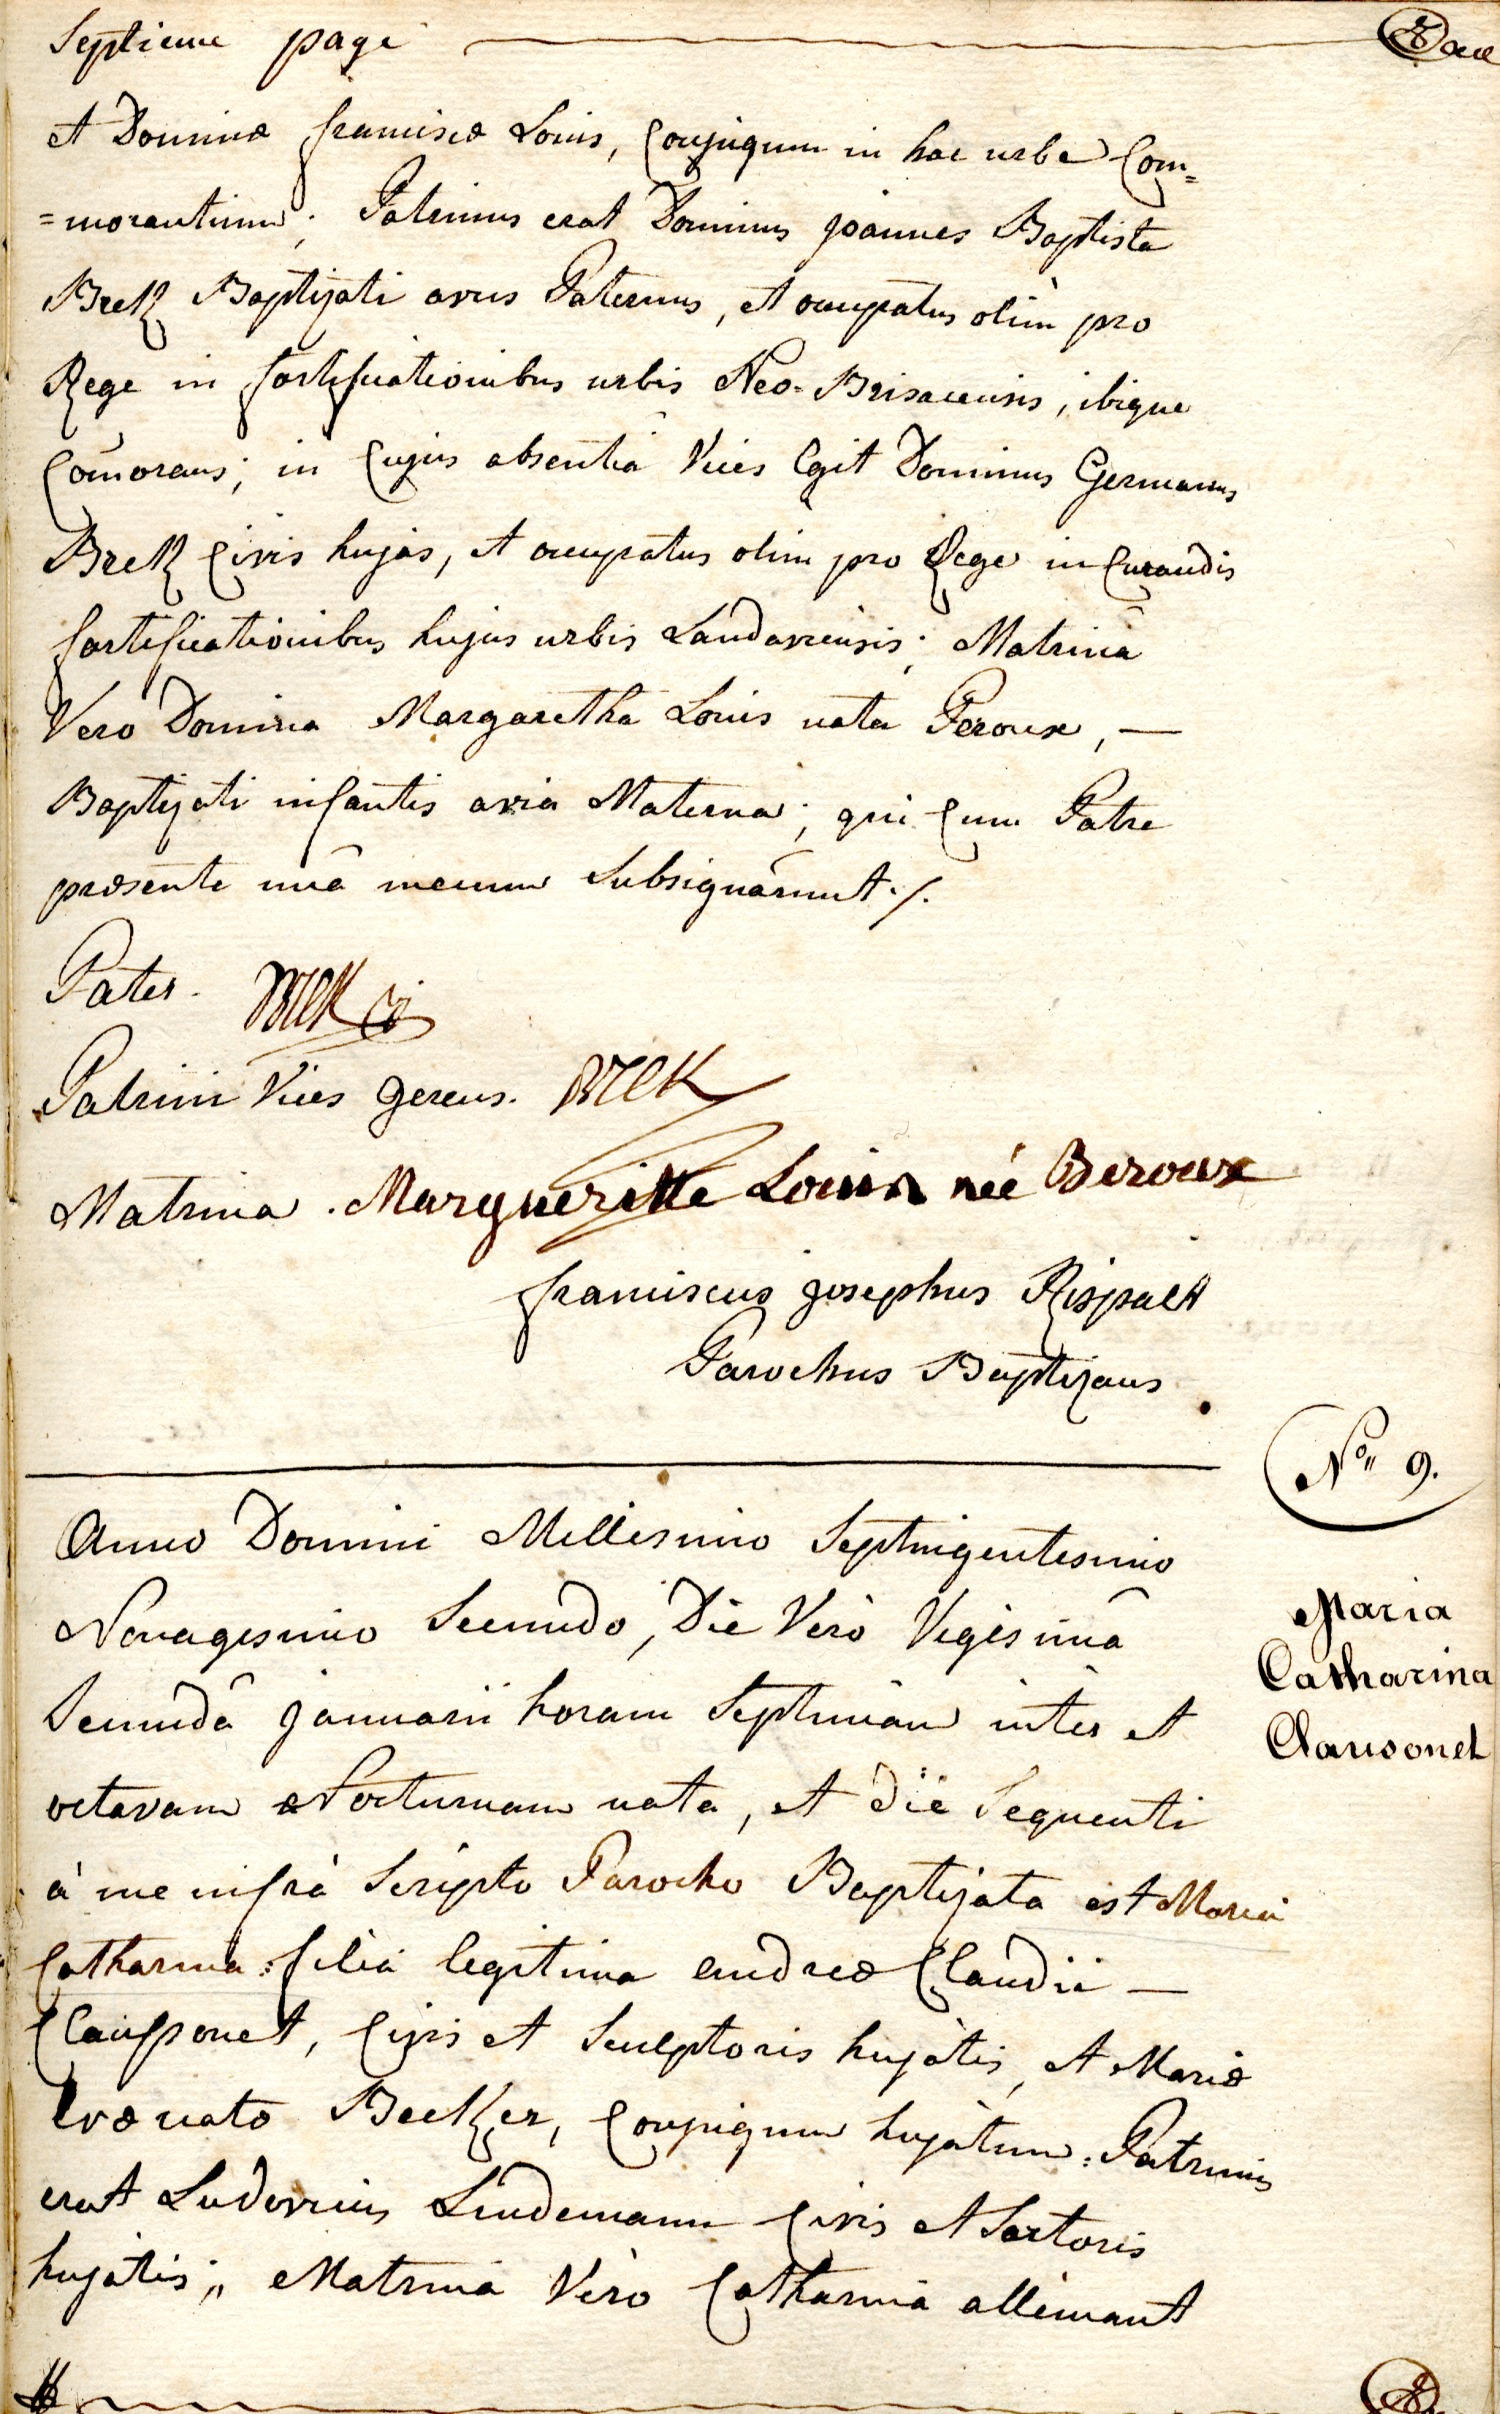 Septieme page
et Dominæ franciscæ Louis, Conjugum in hac urbe Com=
=morantium; Patrinus erat Dominus joannes Baptista
Brek Baptizati avus Paternus, et occupatus olim pro
Rege in fortificationibus urbis Neo-Brisacensis, ibique
Com̃orans; in Cujus absentiâ Vices Egit Dominus Germanus
Brek Civis hujas, et occupatus olim pro Rege in Curandis
fortificationibus hujus urbis Landaviensis; Matrina
Vero Domina Margaretha Louis nata Peroux, —
Baptizati infantis avia Materna; qui Cum Patre
præsente unâ mecum Subsignârunt ./.
Pater. Brek
Patrini Vices gerens. Brek
Matrina. Margueritte Louis née Beroux
franciscus josephus Rispalt
Parochus Baptizans
N°" 9.
Maria
Catharina
Clausonet
Anno Domini Millesimo Septingentesimo
Nonagesimo Secundo, Die Verò Vigesimâ
Secundâ januarii horam Septimam inter et
octavam Nocturnam nata, et die Sequenti
à me infrà Scripto Parocho Baptizata est Maria
Catharina: filia legitima andreæ Claudii —
Claussonet, Civis et Sculptoris hujatis, et Mariæ
Evæ natæ Becker, Conjugum hujatum: Patrinus
erat Ludovicus Lindemann Civis et Sartoris
hujatis;, Matrina Verò Catharina allemant